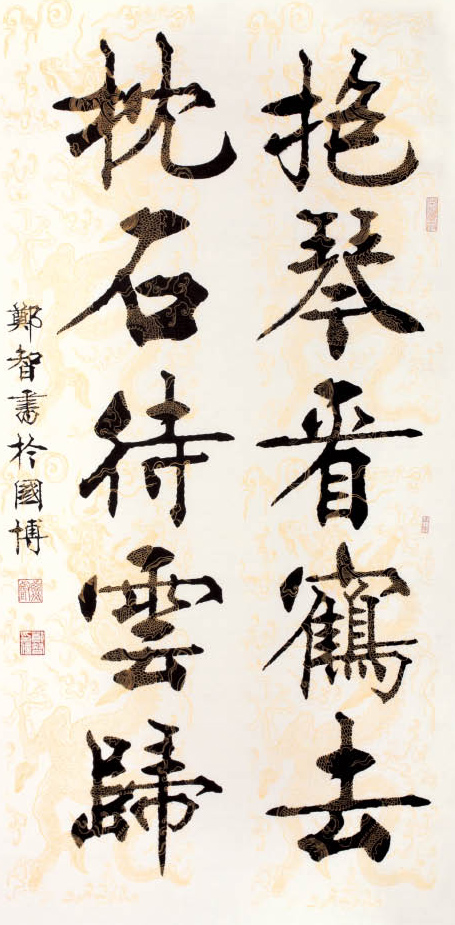 抱琴看鶴去
枕石待雲歸
鄭智書於國博